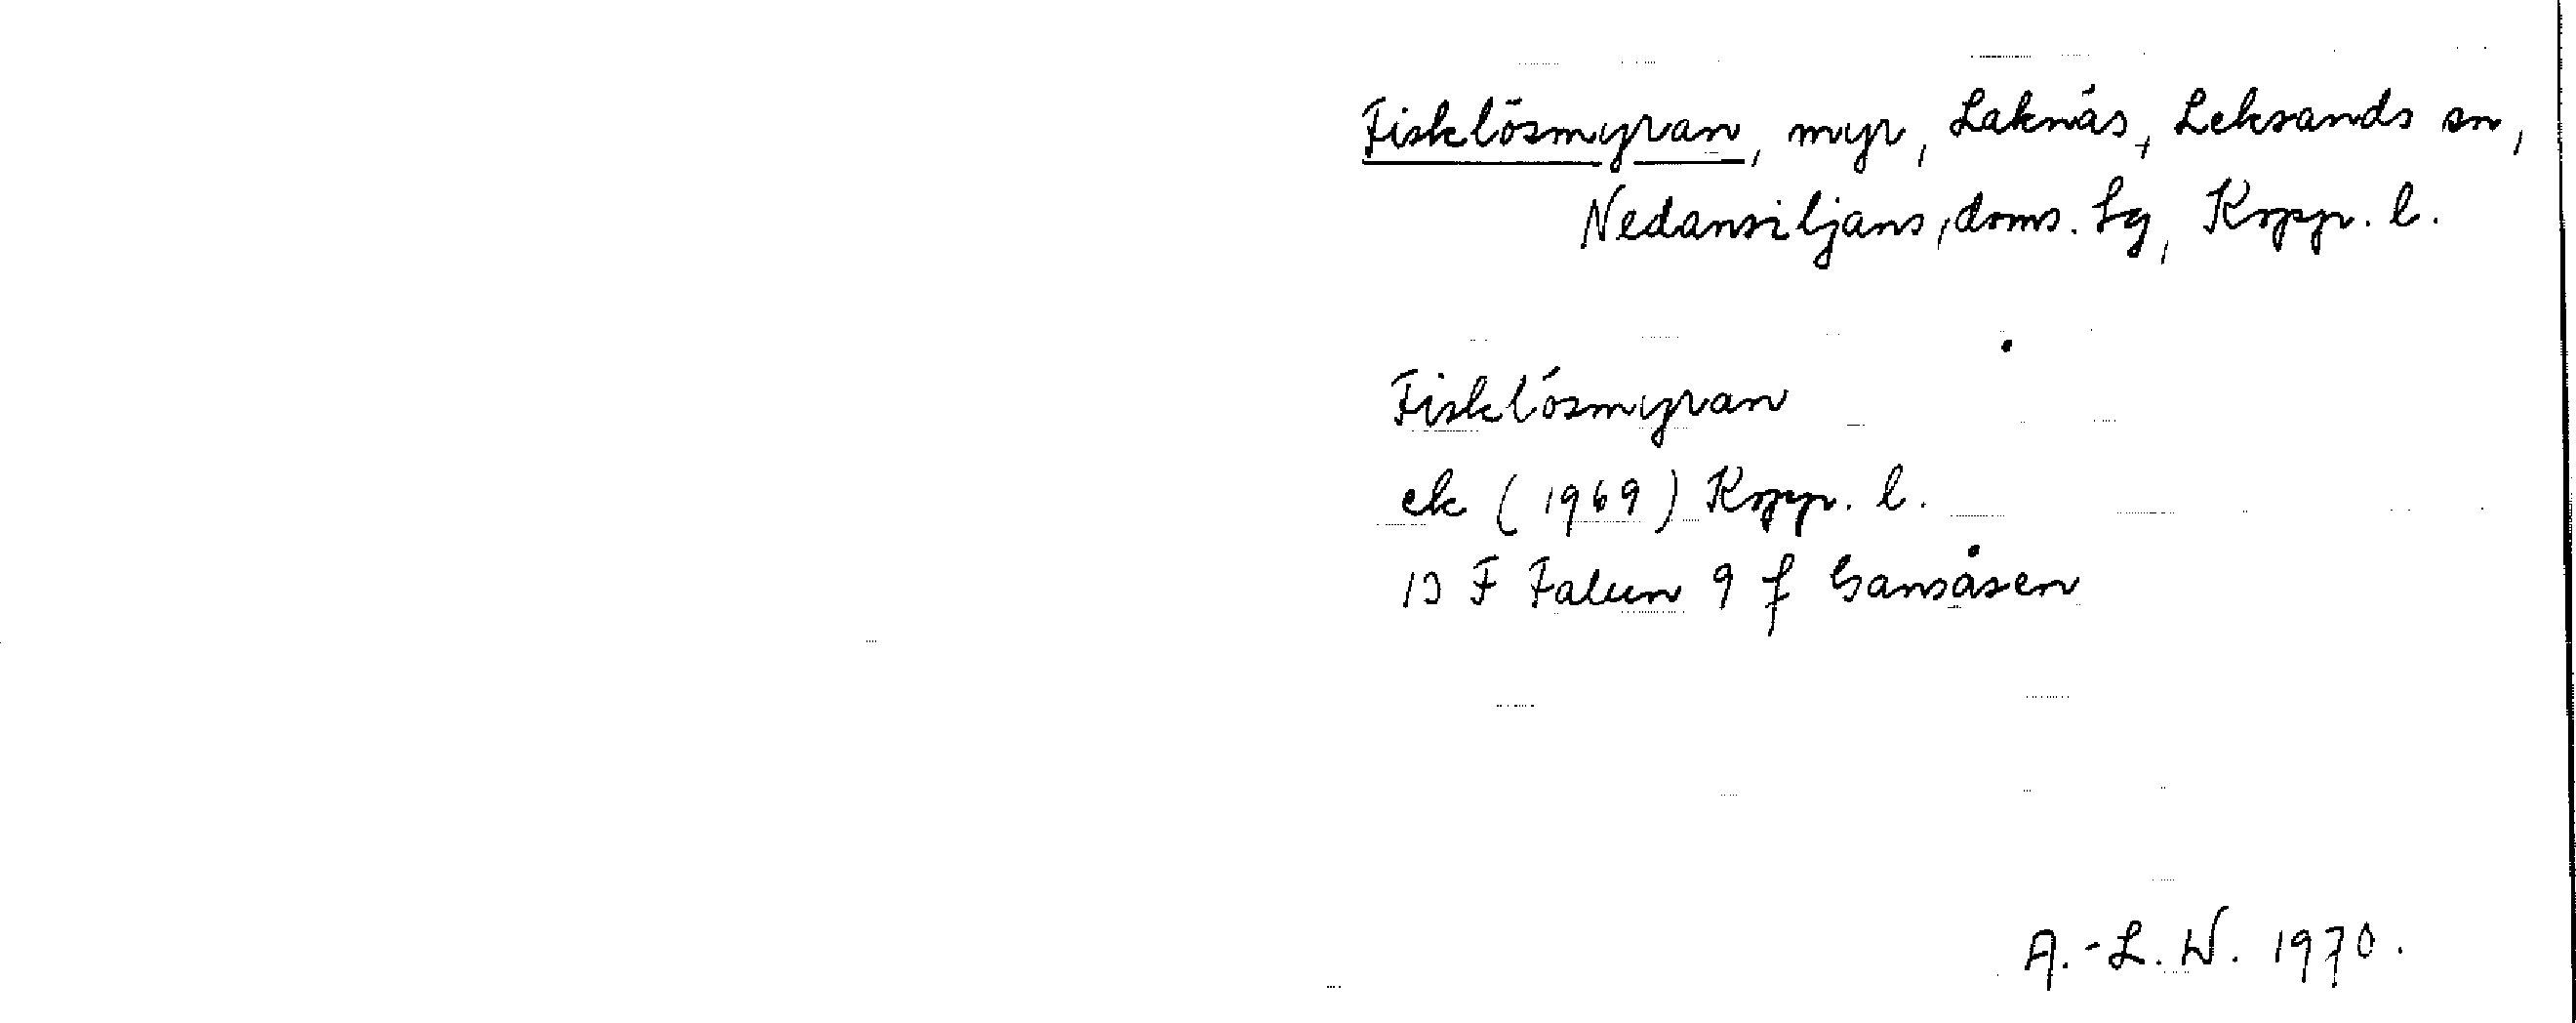 Fisklösmyran, myr, Laknäs, Leksands sn,
Nedansiljans, doms. lg, Kopp. l.
Fisklösmyran
ek (1969) Kopp. l.
13 F Falun 9 f Gansåsen
A.-L. W. 1970.